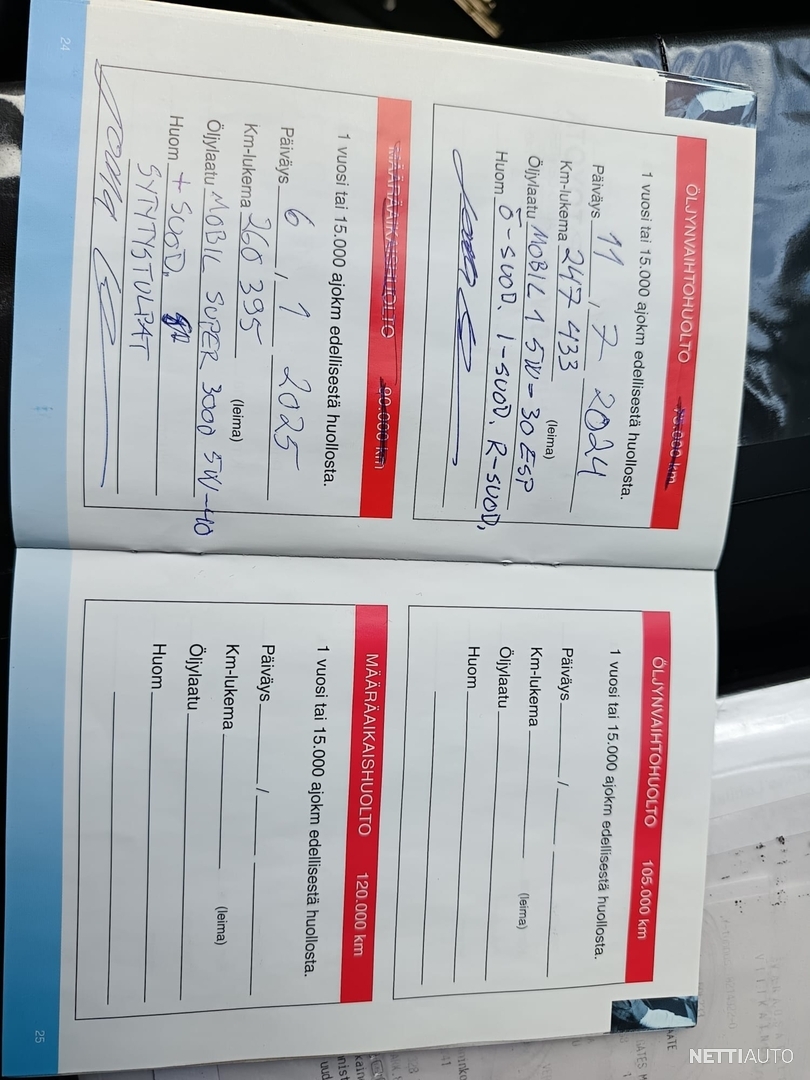 24
ÖLJYNVAIHTOHUOLTO 75.000 km
1 vuosi tai 15.000 ajokm edellisestä huollosta.
Päiväys 11 / 7 2024
Km-lukema 247 433
(leima)
Öljylaatu MOBIL 1 5W-30 ESP
Huom Ö-SUOD. I-SUOD. R-SUOD,
MÄÄRÄAIKAISHUOLTO 90.000 km
1 vuosi tai 15.000 ajokm edellisestä huollosta.
Päiväys 6 / 1 2025
Km-lukema 260 395
(leima)
Öljylaatu MOBIL SUPER 3000 5W-40
Huom + SUOD.
SYTYTYSTULPAT
ÖLJYNVAIHTOHUOLTO 105.000 km
1 vuosi tai 15.000 ajokm edellisestä huollosta.
Päiväys / 
Km-lukema
(leima)
Öljylaatu
Huom
MÄÄRÄAIKAISHUOLTO 120.000 km
1 vuosi tai 15.000 ajokm edellisestä huollosta.
Päiväys /
Km-lukema
(leima)
Öljylaatu
Huom
25
NETTIAUTO